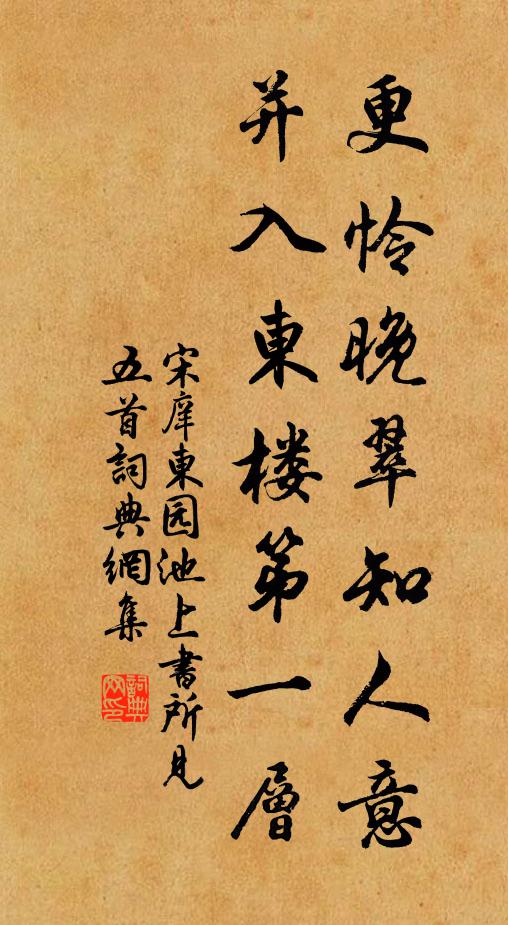 更怜晚翠知人意
并入東楼第一層
宋庠東园池上書所見
五首詞典網集
詞典
网印